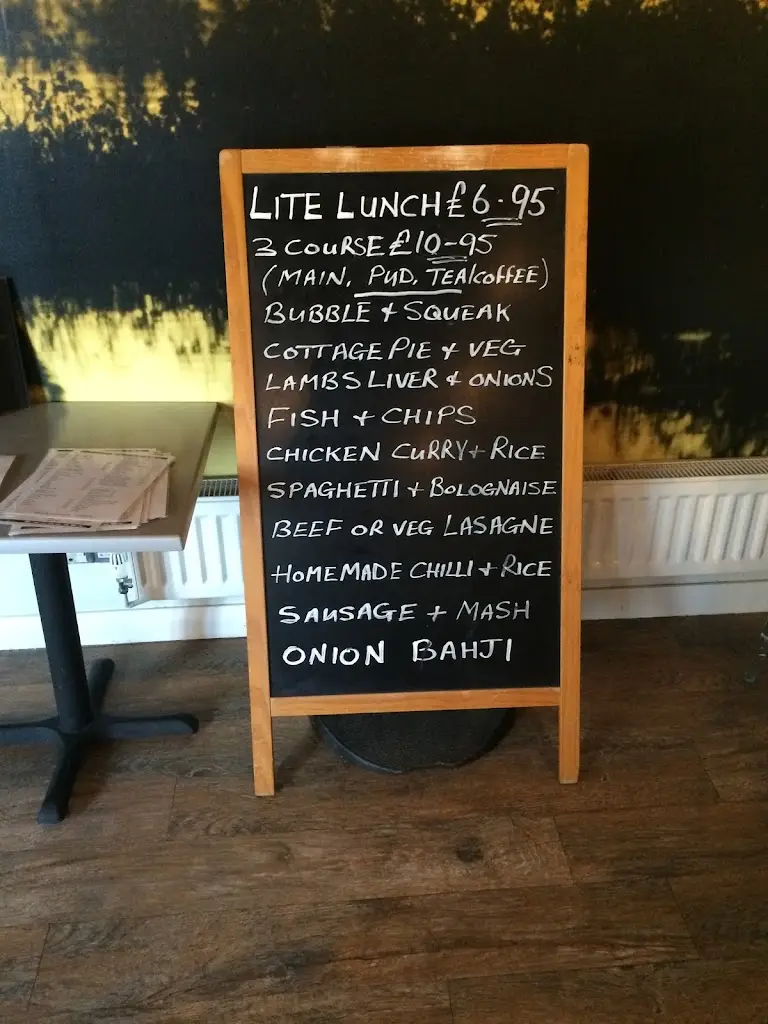 LITE LUNCH £6.95
3 COURSE £10-95
(MAIN, PUD, TEA/COFFEE)
BUBBLE + SQUEAK
COTTAGE PIE + VEG
LAMBS LIVER + ONIONS
FISH + CHIPS
CHICKEN CURRY + RICE
SPAGHETTI + BOLOGNAISE
BEEF OR VEG LASAGNE
HOMEMADE CHILLI + RICE
SAUSAGE + MASH
ONION BAHJI